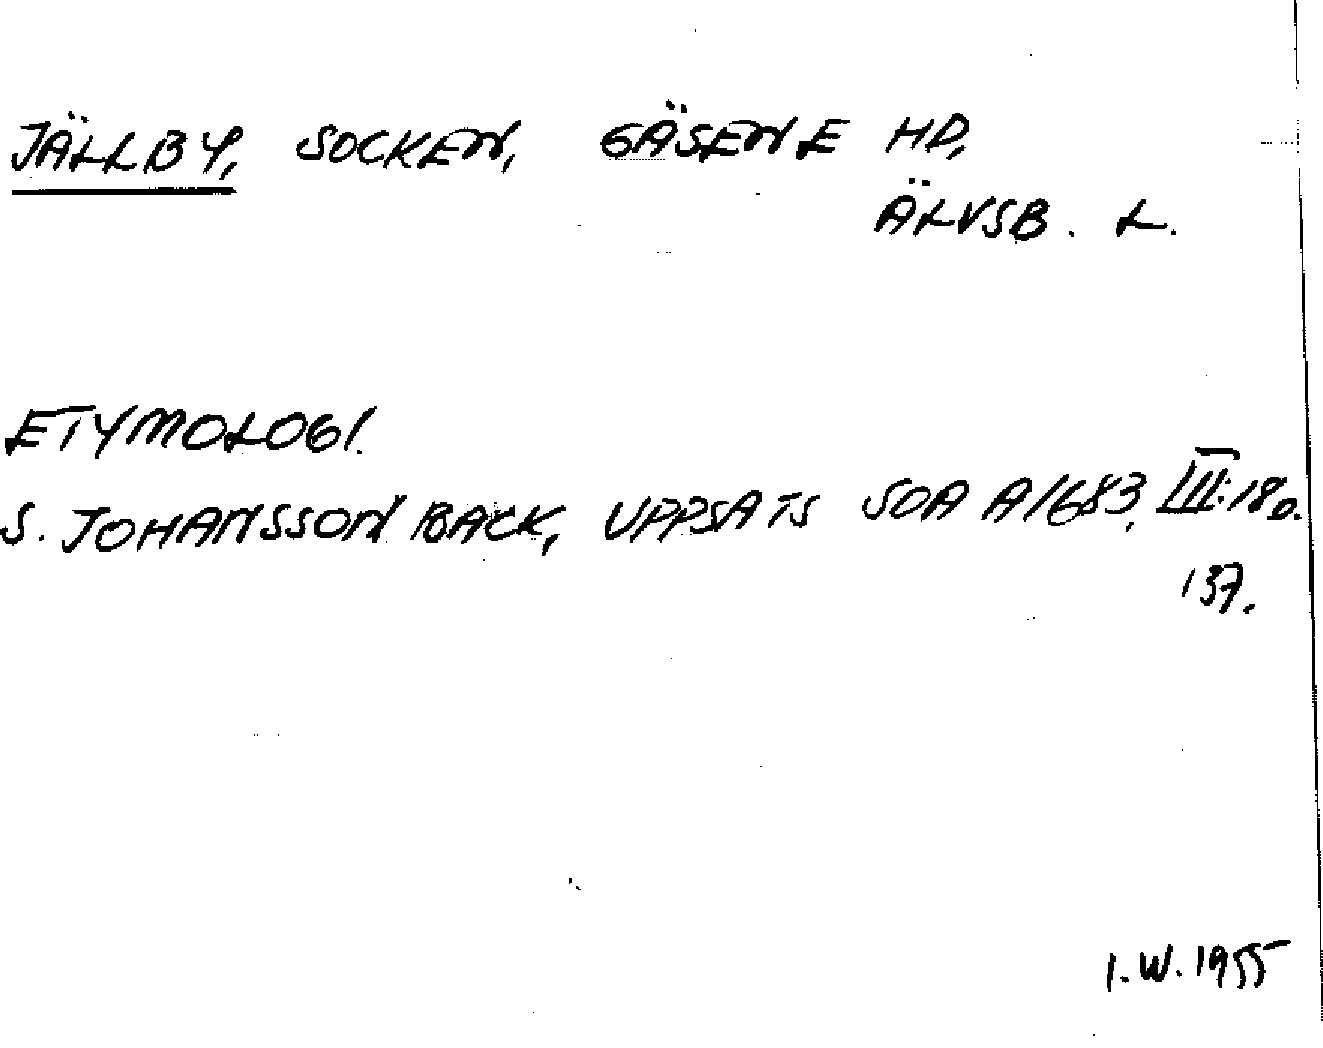 JÄLLBY, SOCKEN, GÄSENE HD,
ÄLVSB. L.
ETYMOLOGI.
S. JOHANSSON BACK, UPPSATS SOA A1683, III:18o.
137.
I.W. 1955